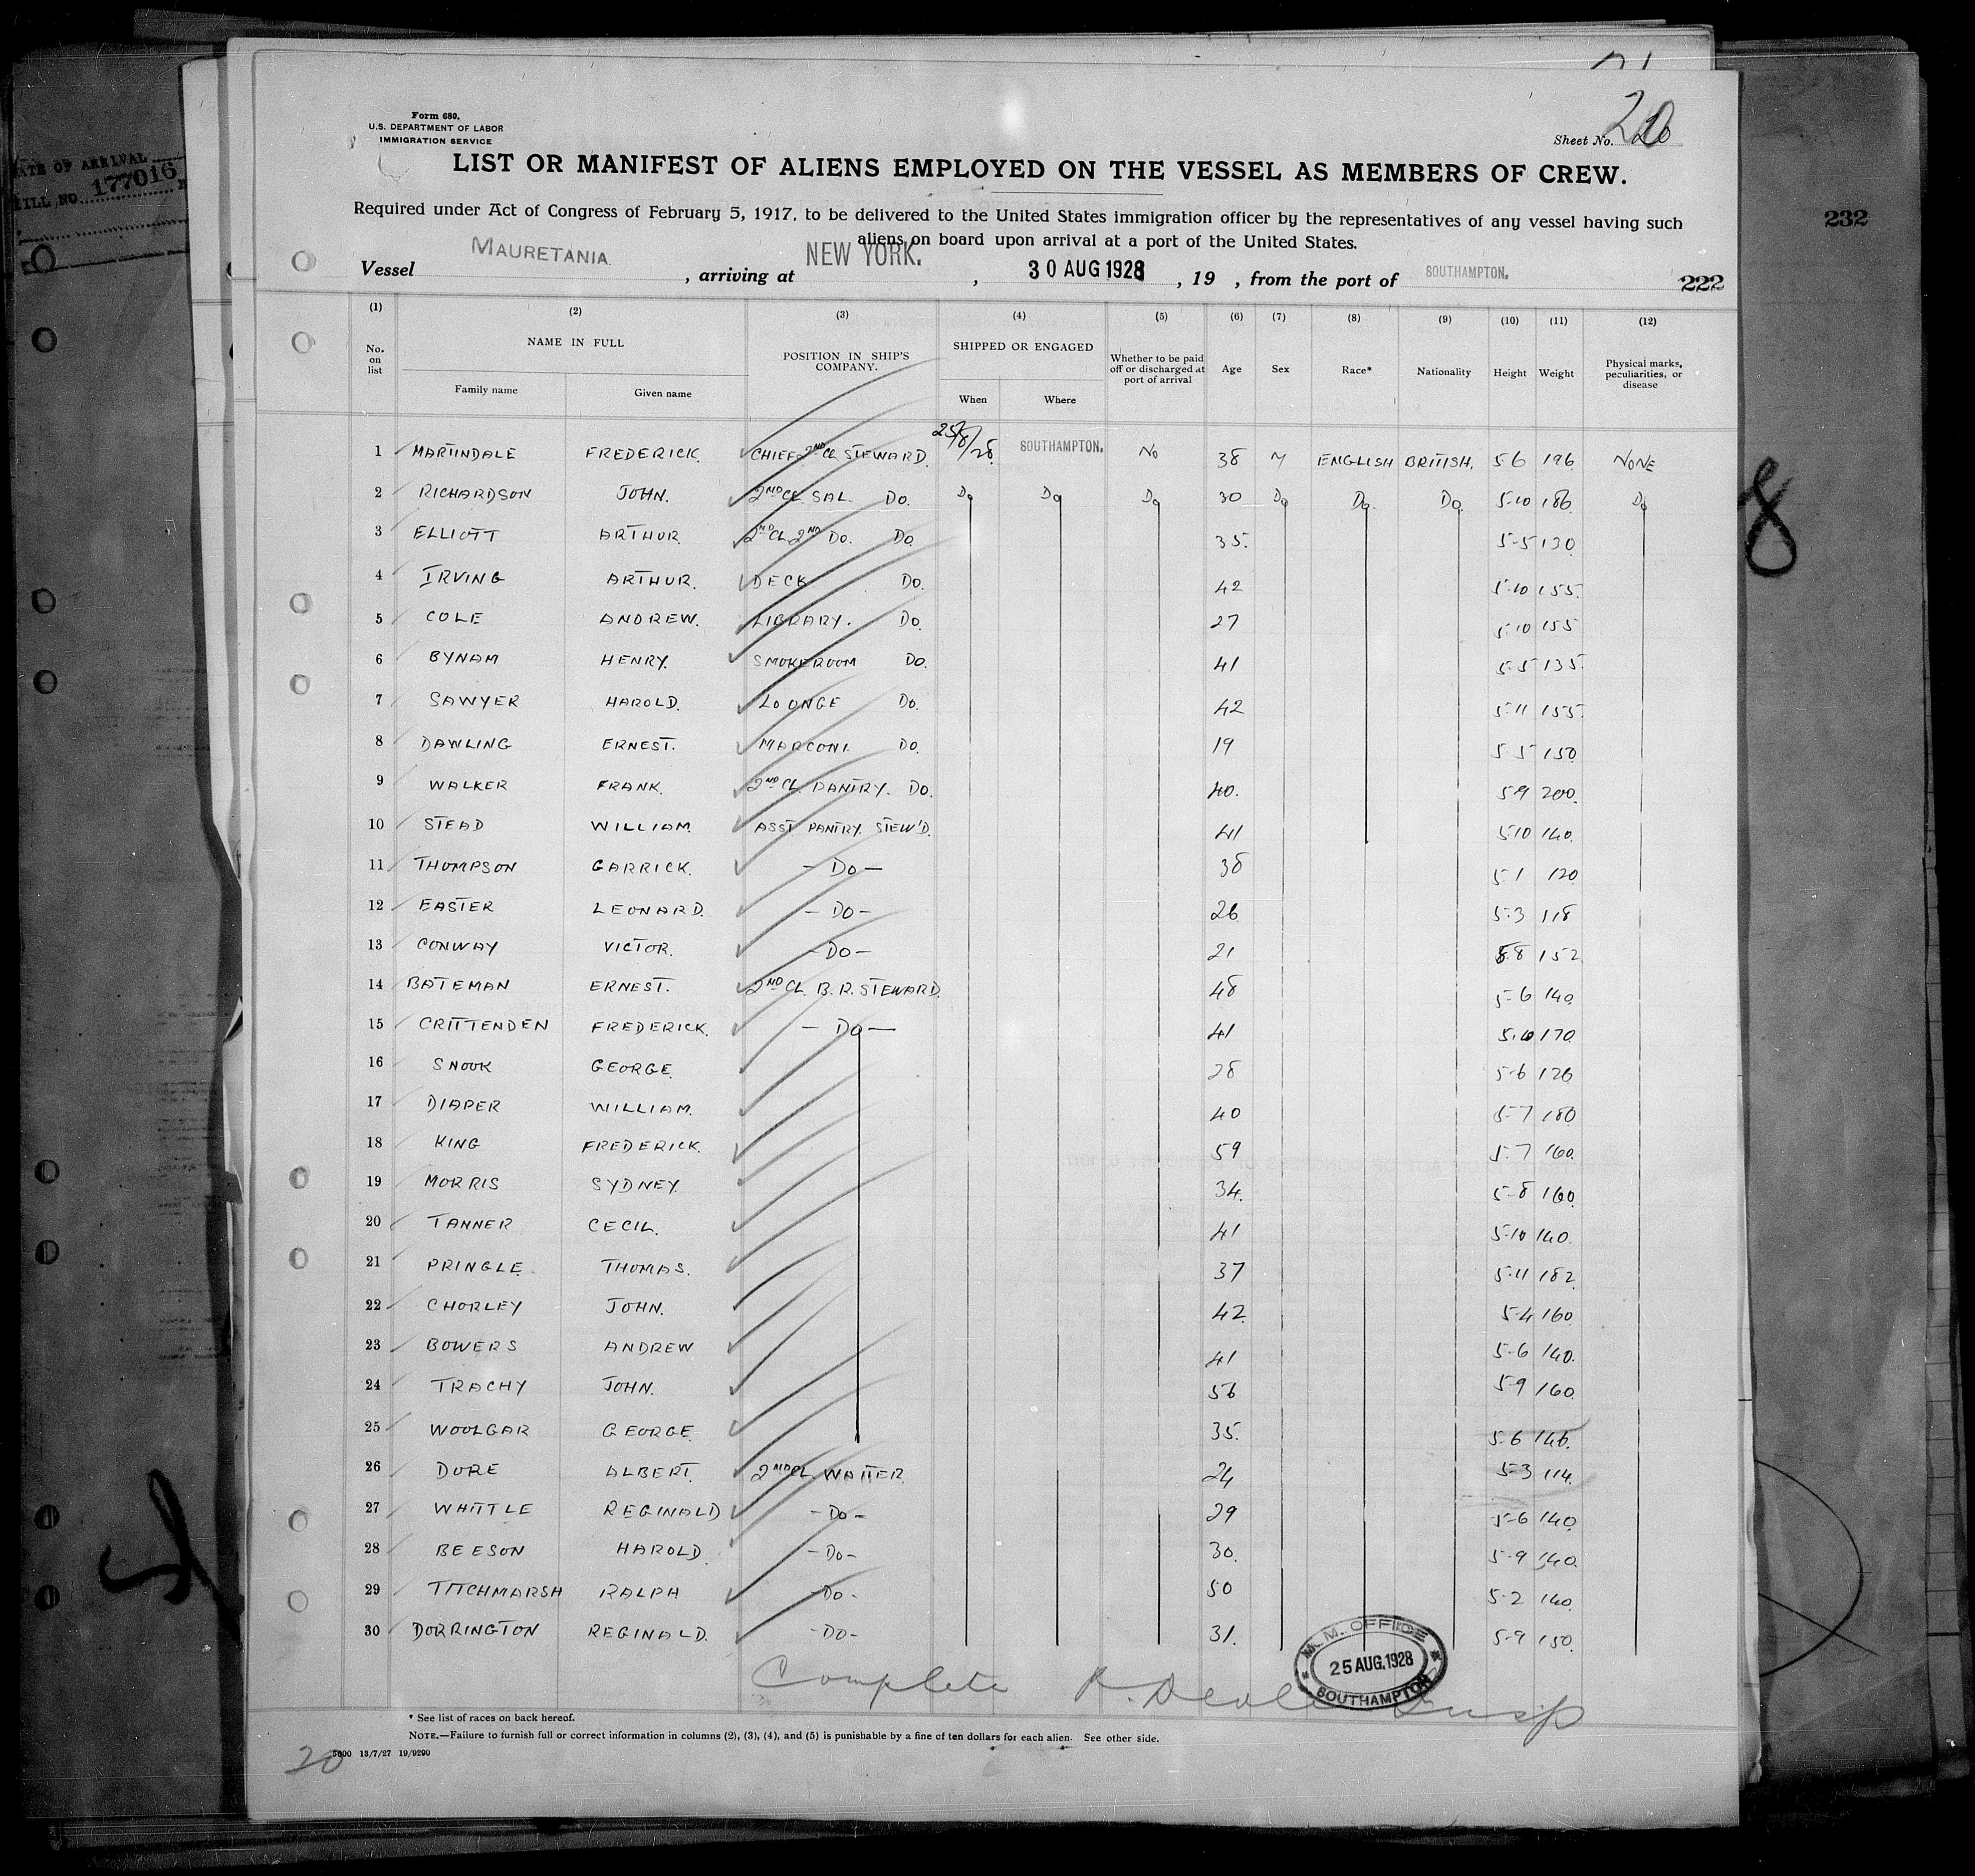 DATE OF ARRIVAL
177016
232
Form 680.
U.S. DEPARTMENT OF LABOR
IMMIGRATION SERVICE
Sheet No. 20
LIST OR MANIFEST OF ALIENS EMPLOYED ON THE VESSEL AS MEMBERS OF CREW.
Required under Act of Congress of February 5, 1917, to be delivered to the United States immigration officer by the representatives of any vessel having such
aliens on board upon arrival at a port of the United States.
Vessel MAURETANIA, arriving at NEW YORK., 30 AUG 1928, 19 , from the port of SOUTHAMPTON. 222
(1) (2) (3) (4) (5) (6) (7) (8) (9) (10) (11) (12)
No. on list NAME IN FULL POSITION IN SHIP'S COMPANY. SHIPPED OR ENGAGED Whether to be paid off or discharged at port of arrival Age Sex Race* Nationality Height Weight Physical marks, peculiarities, or disease
Family name Given name When Where
1 MARTINDALE FREDERICK. CHIEF 2ND CL STEWARD. 25/8/28. SOUTHAMPTON. NO 38 M ENGLISH BRITISH. 5-6 196 NONE
2 RICHARDSON JOHN. 2ND CL SAL. DO. DO DO DO 30 DO DO. DO. 5-10 186. DO
3 ELLIOTT ARTHUR. 2ND CL 2ND DO. DO. 35. 5-5 130.
4 IRVING ARTHUR. DECK DO. 42 5-10 155.
5 COLE ANDREW. LIBRARY. DO. 27 5-10 155
6 BYNAM HENRY. SMOKEROOM DO. 41 5-5 135.
7 SAWYER HAROLD. LOUNGE DO. 42 5-11 155.
8 DAWLING ERNEST. MARCONI. DO. 19 5-5 150.
9 WALKER FRANK. 2ND CL. PANTRY. DO. 40. 5-9 200.
10 STEAD WILLIAM. ASST PANTRY. STEW'D. 41 5-10 140.
11 THOMPSON GARRICK. - DO - 38 5-1 120
12 EASTER LEONARD. - DO - 26 5-3 118
13 CONWAY VICTOR. - DO - 21 5-8 152
14 BATEMAN ERNEST. 2ND CL. B.R. STEWARD. 48 5-6 140.
15 CRITTENDEN FREDERICK. - DO - 41 5-10 170.
16 SNOOK GEORGE. 28 5-6 126
17 DIAPER WILLIAM. 40 5-7 180
18 KING FREDERICK. 59 5-7 160.
19 MORRIS SYDNEY. 34. 5-8 160.
20 TANNER CECIL. 41 5-10 140.
21 PRINGLE. THOMAS. 37 5-11 182
22 CHORLEY JOHN. 42. 5-4 160.
23 BOWERS ANDREW 41 5-6 140.
24 TRACHY JOHN. 56 5-9 160.
25 WOOLGAR GEORGE. 35. 5-6 146.
26 DORE ALBERT. 2ND CL. WAITER. 24 5-3 114.
27 WHITTLE REGINALD - DO - 29 5-6 140.
28 BEESON HAROLD. - DO - 30. 5-9 140.
29 TITCHMARSH RALPH - DO - 50 5-2 140.
30 DORRINGTON REGINALD. - DO - 31. 5-9 150.
M.M. OFFICE
25 AUG. 1928
SOUTHAMPTON
Complete Insp
* See list of races on back hereof.
NOTE.—Failure to furnish full or correct information in columns (2), (3), (4), and (5) is punishable by a fine of ten dollars for each alien. See other side.
20 5600 13/7/27 19/9290